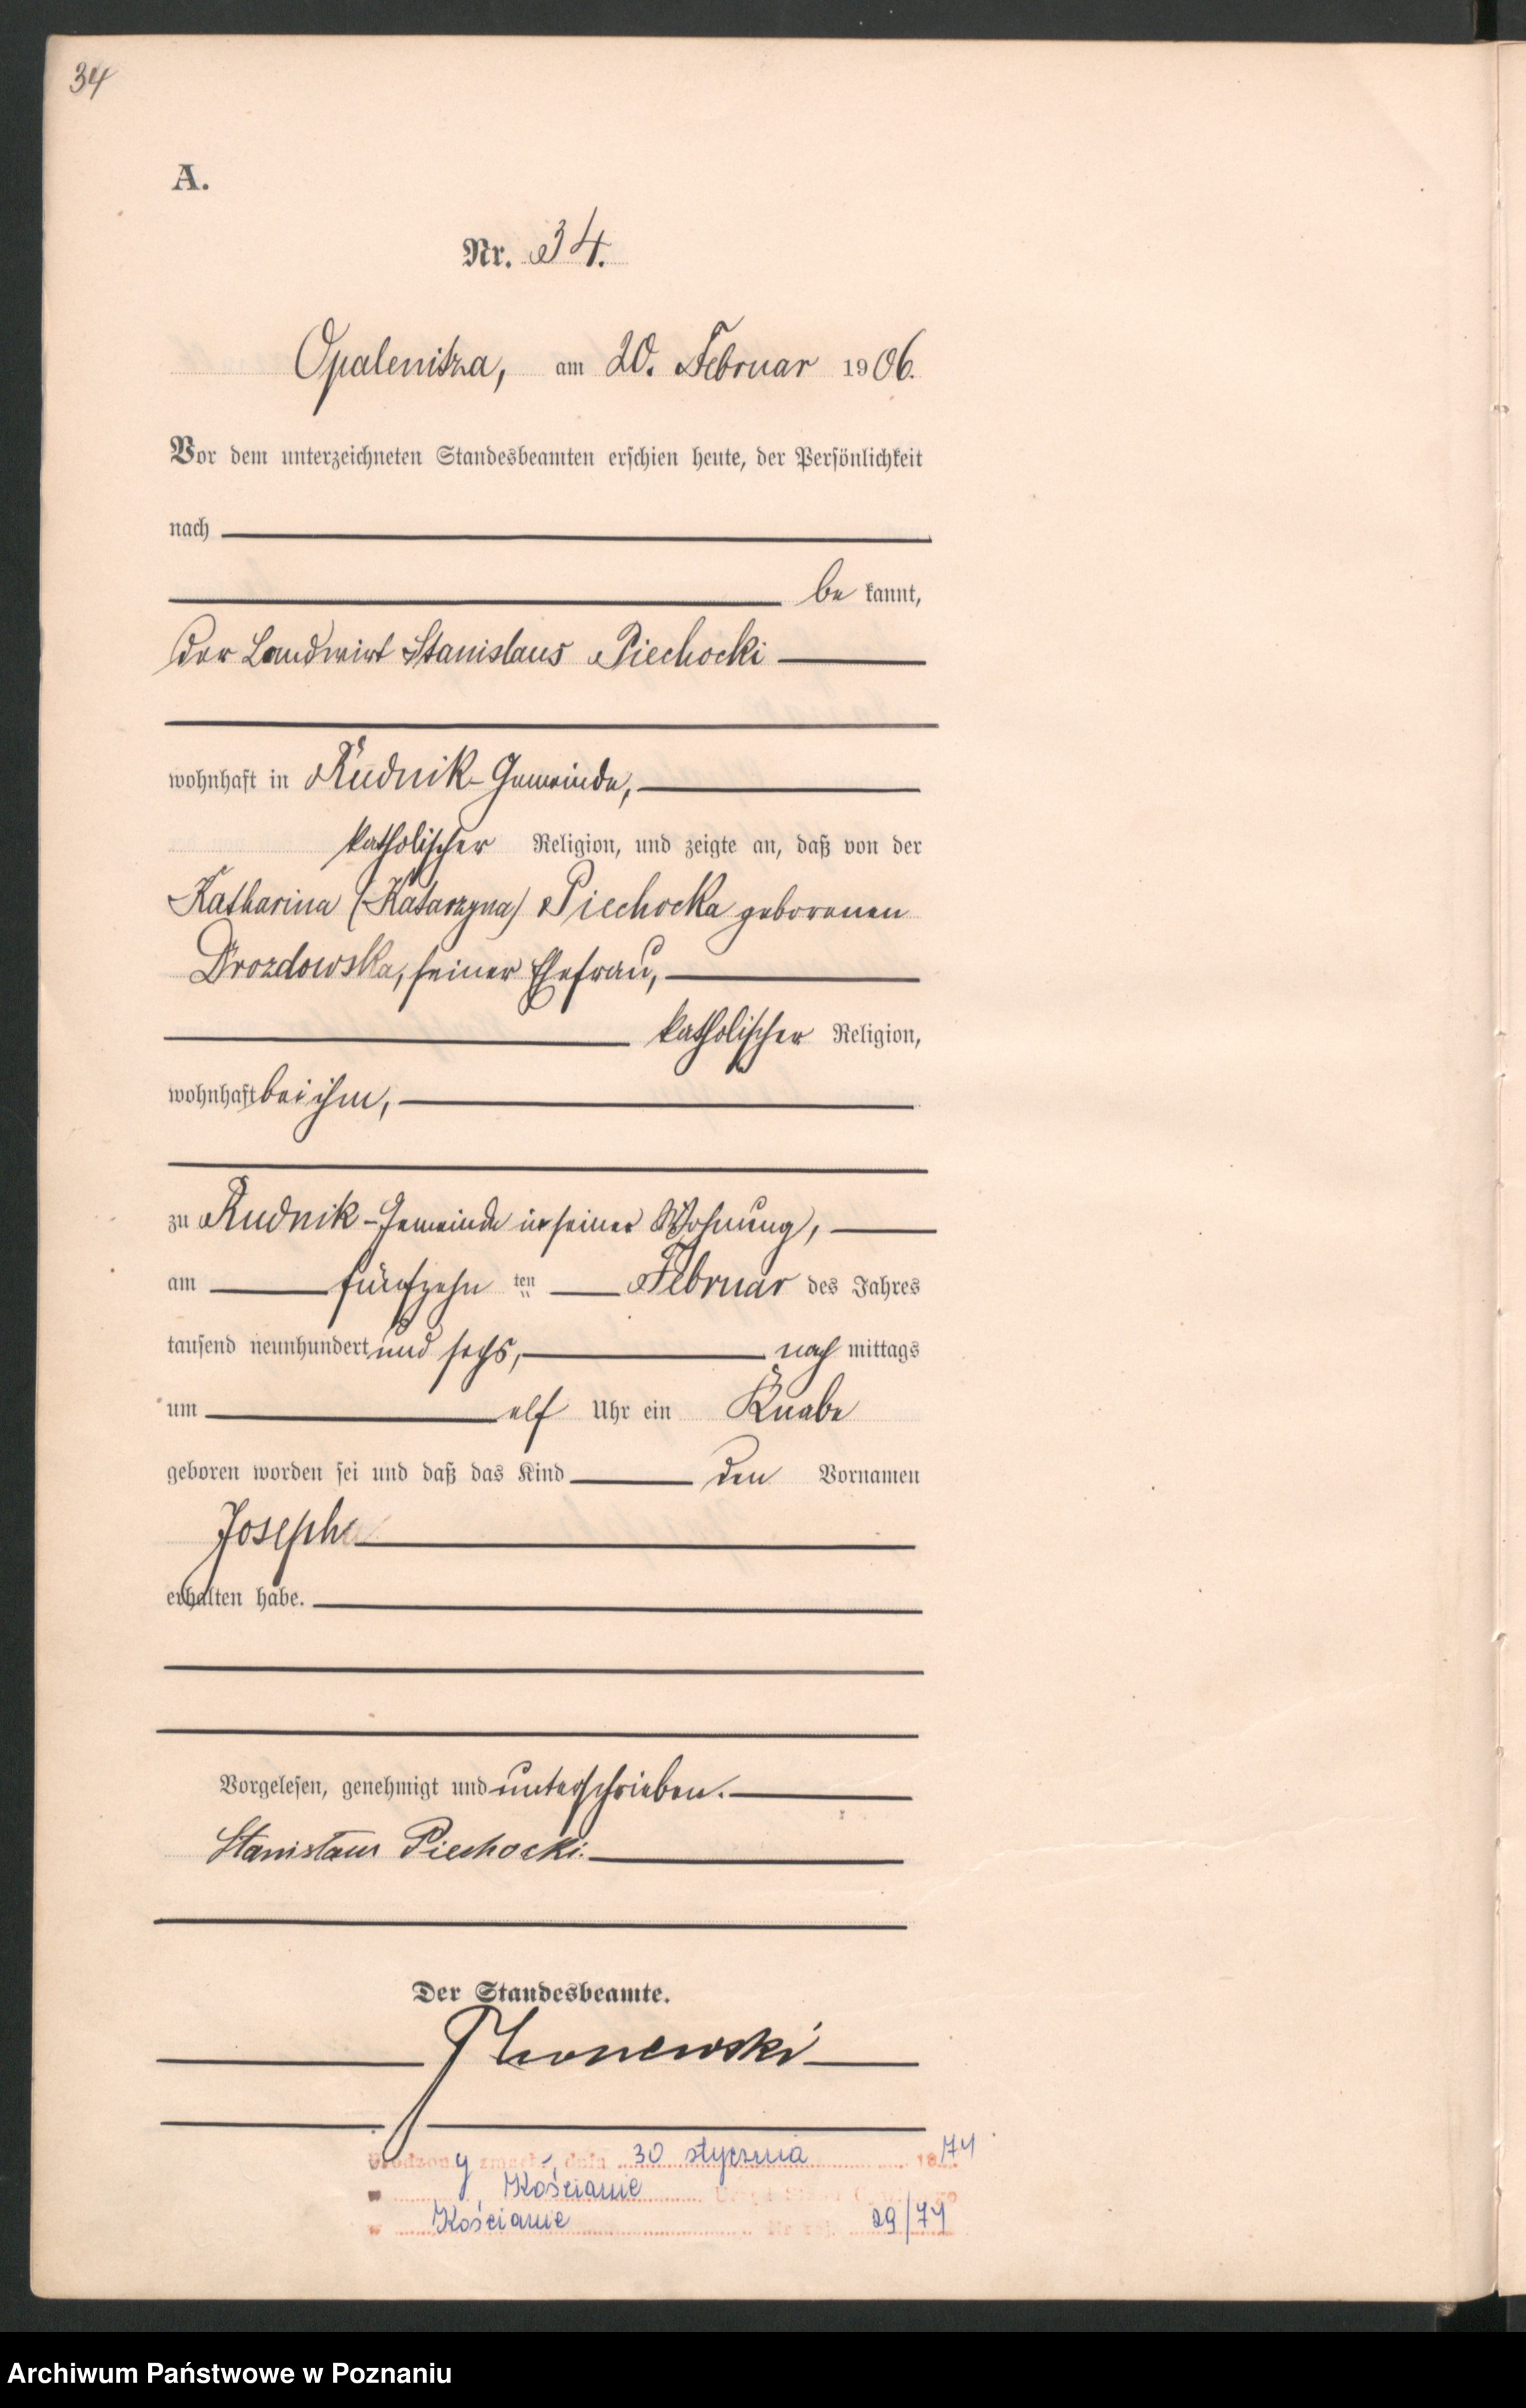 34
A.
Nr. 34.
Opalenitza, am 20. Februar 1906.
Vor dem unterzeichneten Standesbeamten erschien heute, der Persönlichkeit
nach
be kannt,
der Landwirt Stanislaus Piechocki
wohnhaft in Rudnik-Gemeinde,
katholischer Religion, und zeigte an, daß von der
Katharina (Katarzyna) Piechocka geborenen
Drozdowska, seiner Ehefrau,
katholischer Religion,
wohnhaft bei ihm,
zu Rudnik-Gemeinde in seiner Wohnung,
am fünfzehn ten Februar des Jahres
tausend neunhundert und sechs, nach mittags
um elf Uhr ein Knabe
geboren worden sei und daß das Kind den Vornamen
Joseph
erhalten habe.
Vorgelesen, genehmigt und unterschrieben.
Stanisław Piechocki.
Der Standesbeamte.
Urodzony zmarł, dnia 30 stycznia 1974
w Kościanie Urząd Stanu Cywilnego
w Kościanie Nr rej. 29/74
Archiwum Państwowe w Poznaniu